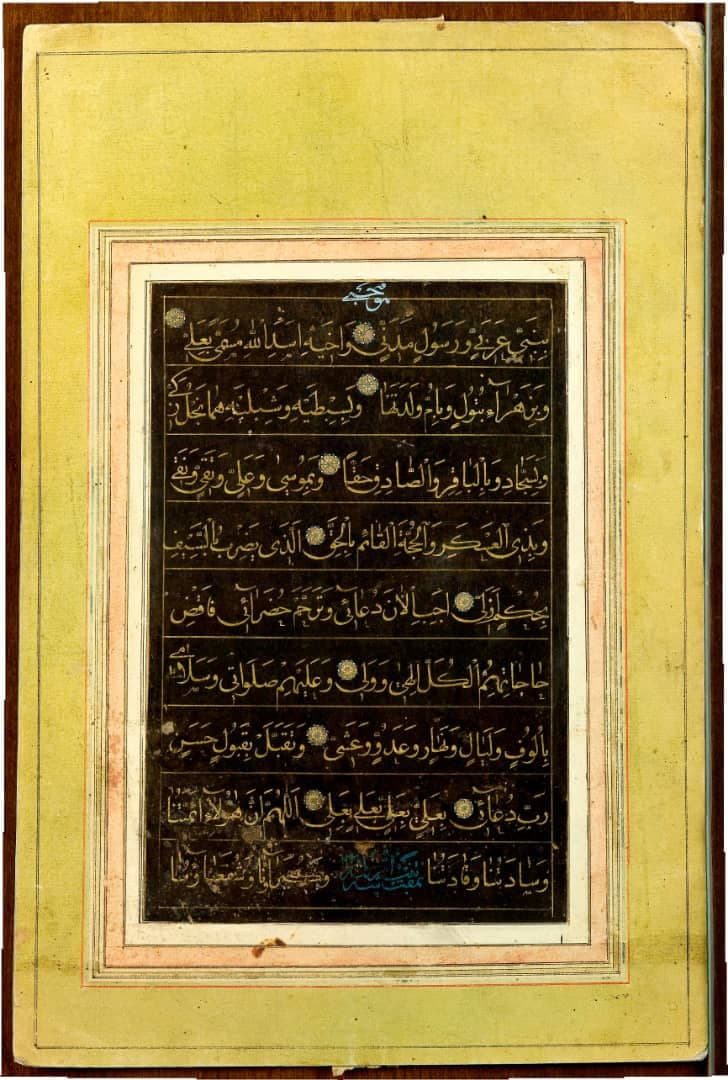 بِنَبِيٍّ عَرَبِيٍّ وَرَسُولٍ مَدَنِيٍّ وَاَخِيهِ اَسَدِاللهِ مُسَمًّى بِعَلِيٍّ
وَبِزَهْرَآءِ بَتُولٍ وَبِاُمٍّ وَلَدَتْهَا وَبِسِبْطَيْهِ وَشِبْلَيْهِ هُمَا نَجْلُ زَكِيٍّ
وَبِسَجَّادٍ وَبِالْبَاقِرِ وَالصَّادِقِ حَقًّا وَبِمُوسٰى وَعَلِيٍّ وَتَقِيٍّ وَنَقِيٍّ
وَبِذِى الْعَسْكَرِ وَالْحُجَّةِ الْقَائِمِ بِالْحَقِّ الَّذِى يَضْرِبُ بِالسَّيْفِ
بِحُكْمٍ اَزَلِيٍّ اَجِبِ الْاٰنَ دُعَائِى وَتَرَحَّمْ حُضَرَائِى فَاقْضِ
حَاجَاتِهِمُ الْكُلَّ اِلٰهِى وَوَلِىِّ وَعَلَيْهِمْ صَلَوَاتِى وَسَلَامِى
بِاُلُوفٍ وَلَيَالٍ وَنَهَارٍ وَغُدُوٍّ وَعَشِىٍّ وَتَقَبَّلْ بِقَبُولٍ حَسَنٍ
رَبِّ دُعَائِى بِعَلِيٍّ بِعَلِيٍّ بِعَلِيٍّ بِعَلِيٍّ اَللّٰهُمَّ اِنَّ هٰؤُلَآءِ اَئِمَّتُنَا
وَسَادَتُنَا وَقَادَتُنَا وَشُفَعَاؤُنَا